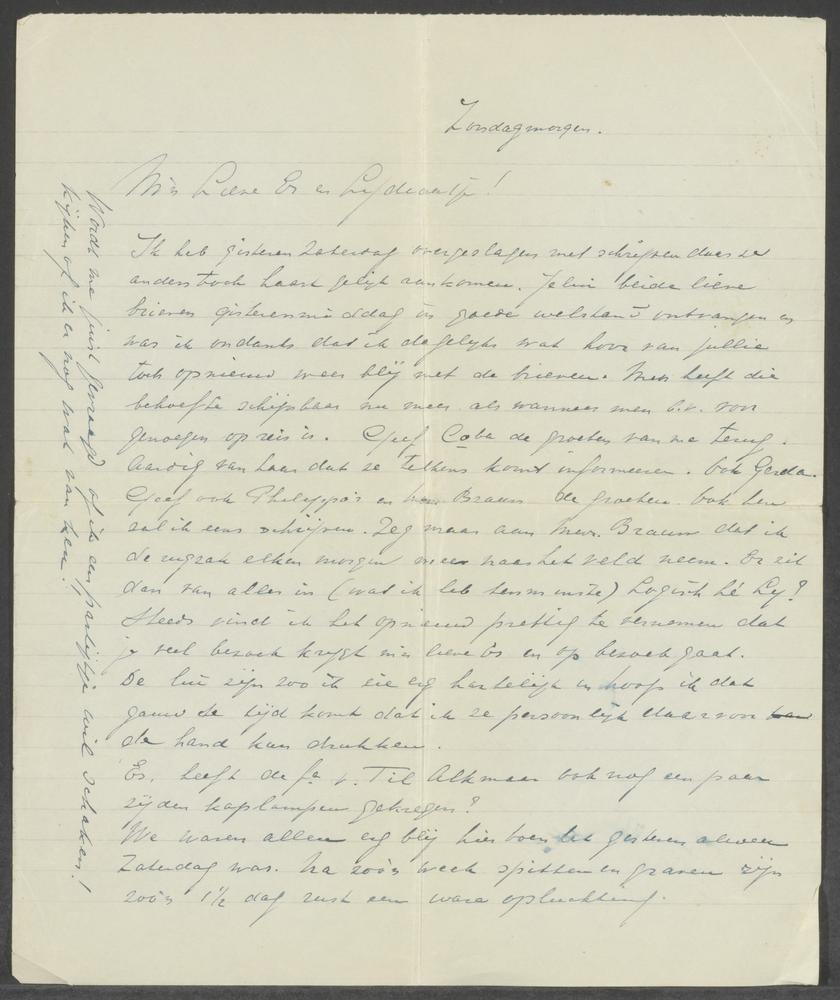 Zondagmorgen.
Mijn Lieve Es en Lydeaantje!
Ik heb gisteren Zaterdag overgeslagen met schrijven daar ze
anders toch haast gelijk aankomen. Jelui beide lieve
brieven gisterenmiddag in goede welstand ontvangen en
was ik ondanks dat ik dagelijks wat hoor van jullie
toch opnieuw weer blij met de brieven. Men heeft die
behoefte schijnbaar nu meer als wanneer men b.v. voor
genoegen op reis is. Geef Coba de groeten van me terug.
Aardig van haar dat ze telkens komt informeeren. Ook Gerda.
Geef ook Philippo's en Braun de groeten. Ook hen
zal ik eens schrijven. Zeg maar aan Mevr. Braun dat ik
de rugzak elken morgen mee naar het veld neem. Er zit
dan van alles in (wat ik heb tenminste) Logisch hè Ly?
Steeds vind ik het opnieuw prettig te vernemen dat
je veel bezoek krijgt mijn lieve Es en op bezoek gaat.
De lui zijn zoo ik zie erg hartelijk en hoop ik dat
gauw de tijd komt dat ik ze persoonlijk daarvoor
de hand kan drukken.
Es, heeft de fa v. Til Alkmaar ook nog een paar
zijden kaplampen gekregen?
We waren allen erg blij hier toen het gisteren alweer
Zaterdag was. Na zoo'n week spitten en graven zijn
zoo'n 1½ dag rust een ware opluchting.
Wordt me juist gevraagd of ik een partijtje wil schaken!
Kijken of ik er nog wat van ken!